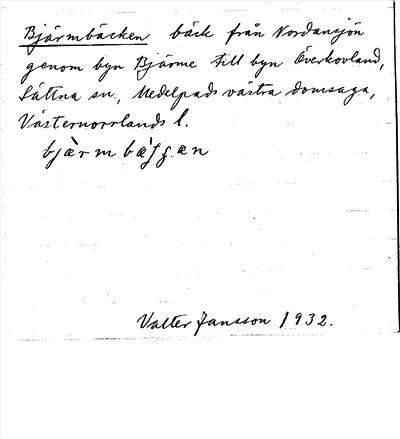 Bjärmbäcken bäck från Nordansjön
genom byn Bjärme till byn Överkovland,
Sättna sn., Medelpads västra domsaga,
Västernorrlands l.
Valter Jansson 1932.